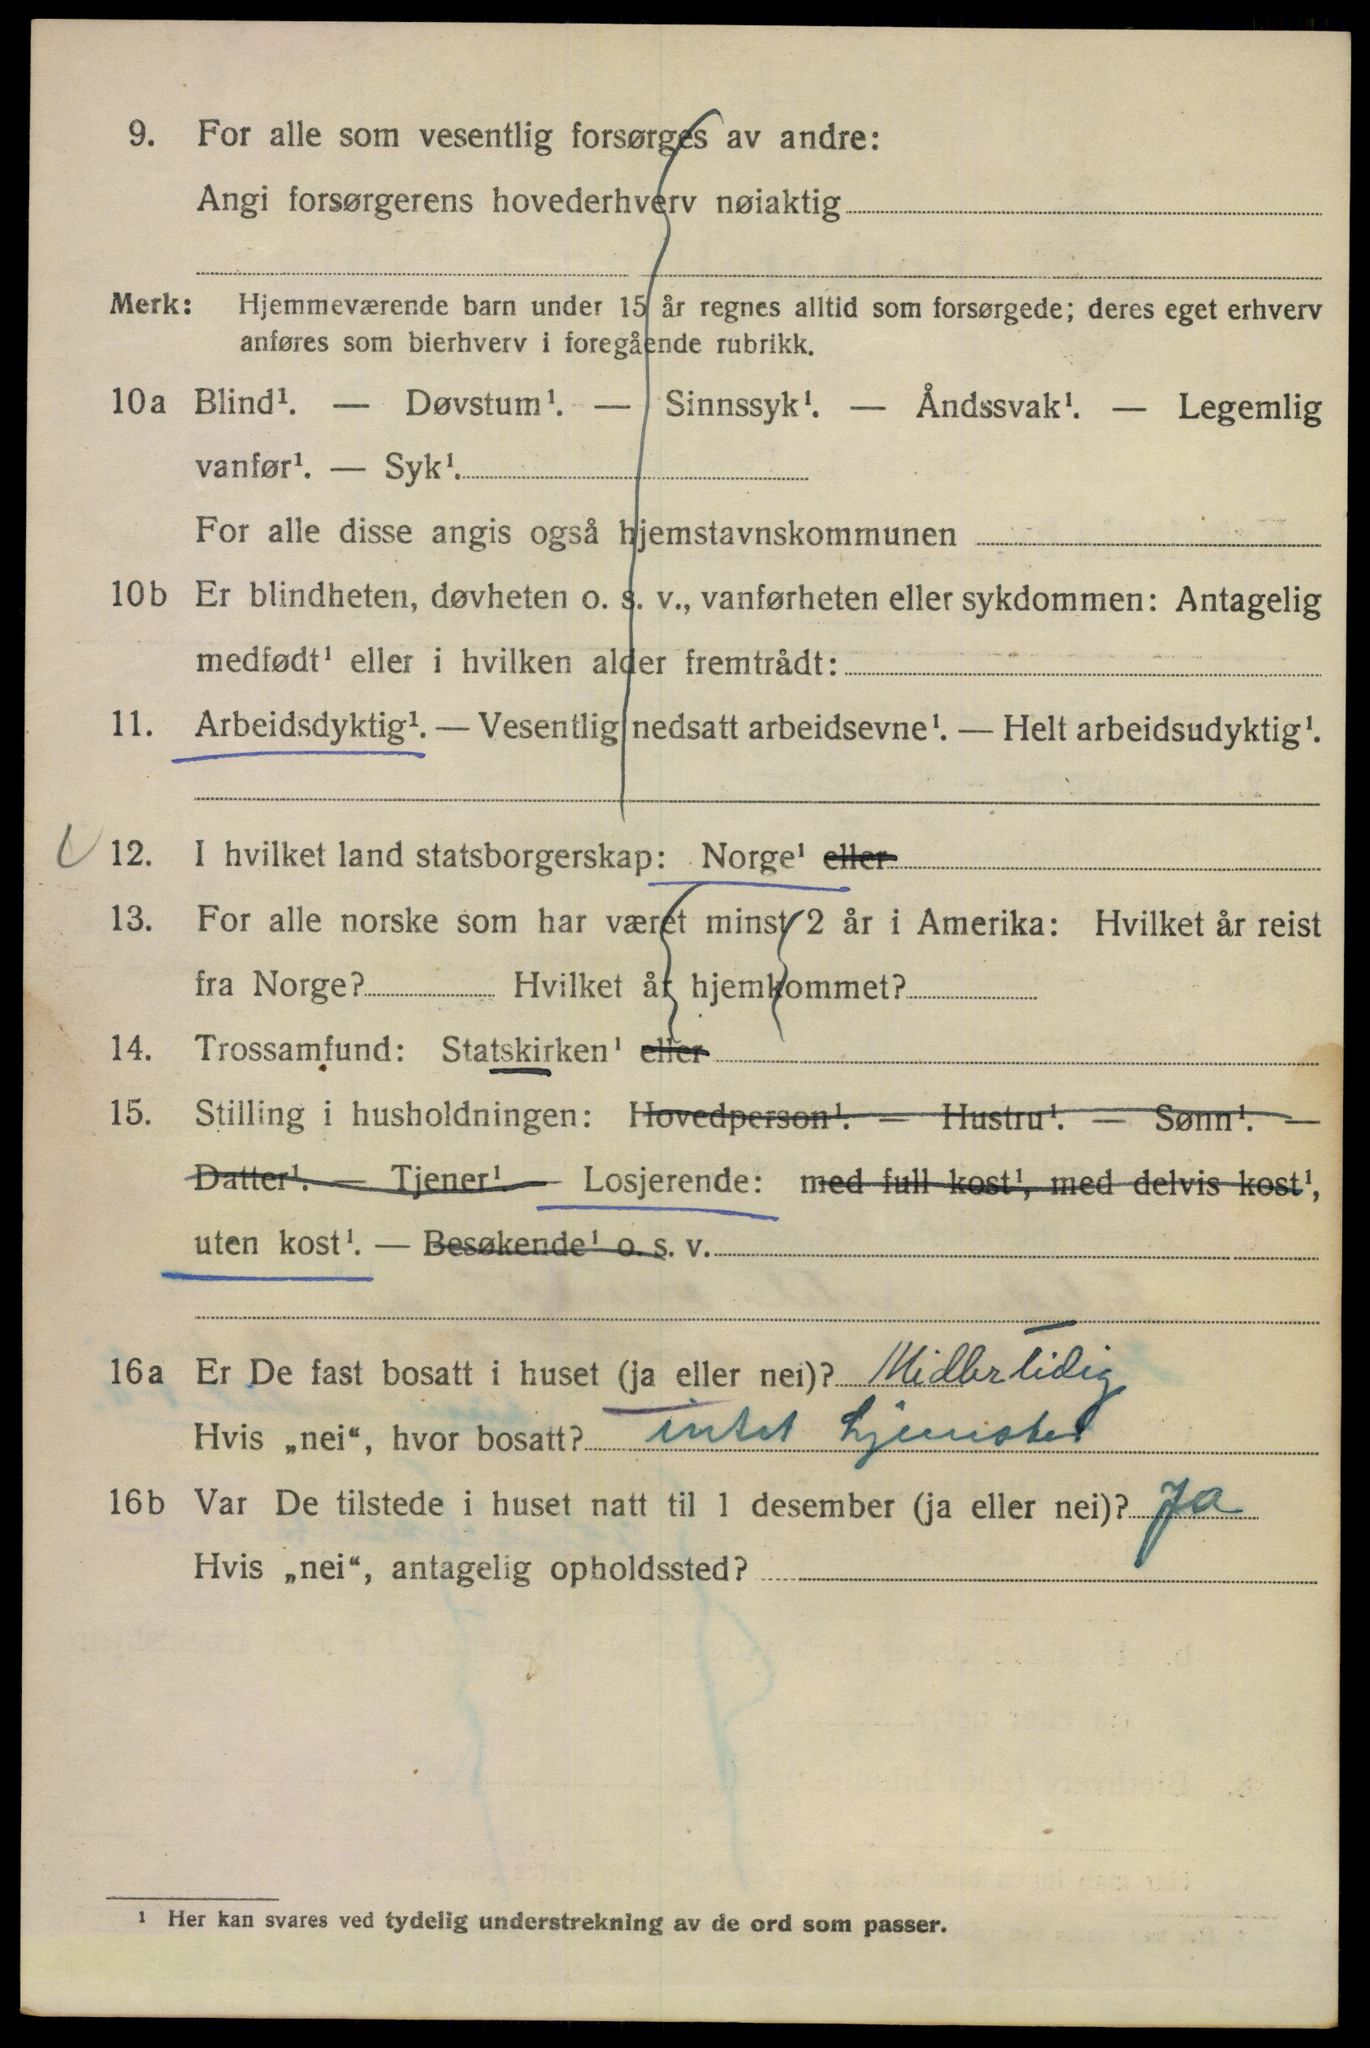 9. For alle som vesentlig forsørges av andre:
Angi forsørgerens hovederhverv nøiaktig
Merk: Hjemmeværende barn under 15 år regnes alltid som forsørgede; deres eget erhverv
anføres som bierhverv i foregående rubrikk.
10a Blind¹. — Døvstum¹. — Sinnssyk¹. — Åndssvak¹. — Legemlig
vanfør¹. — Syk¹.
For alle disse angis også hjemstavnskommunen
10b Er blindheten, døvheten o. s. v., vanførheten eller sykdommen: Antagelig
medfødt¹ eller i hvilken alder fremtrådt:
11. Arbeidsdyktig¹. — Vesentlig nedsatt arbeidsevne¹. — Helt arbeidsudyktig¹.
12. I hvilket land statsborgerskap: Norge¹ eller
13. For alle norske som har været minst 2 år i Amerika: Hvilket år reist
fra Norge? Hvilket år hjemkommet?
14. Trossamfund: Statskirken¹ eller
15. Stilling i husholdningen: Hovedperson¹. — Hustru¹. — Sønn¹. —
Datter¹. — Tjener¹. — Losjerende: med full kost¹, med delvis kost¹,
uten kost¹. — Besøkende¹ o. s. v.
16a Er De fast bosatt i huset (ja eller nei)? Midlertidig
Hvis „nei“, hvor bosatt? intet hjemsted
16b Var De tilstede i huset natt til 1 desember (ja eller nei)? Ja
Hvis „nei“, antagelig opholdssted?
¹ Her kan svares ved tydelig understrekning av de ord som passer.